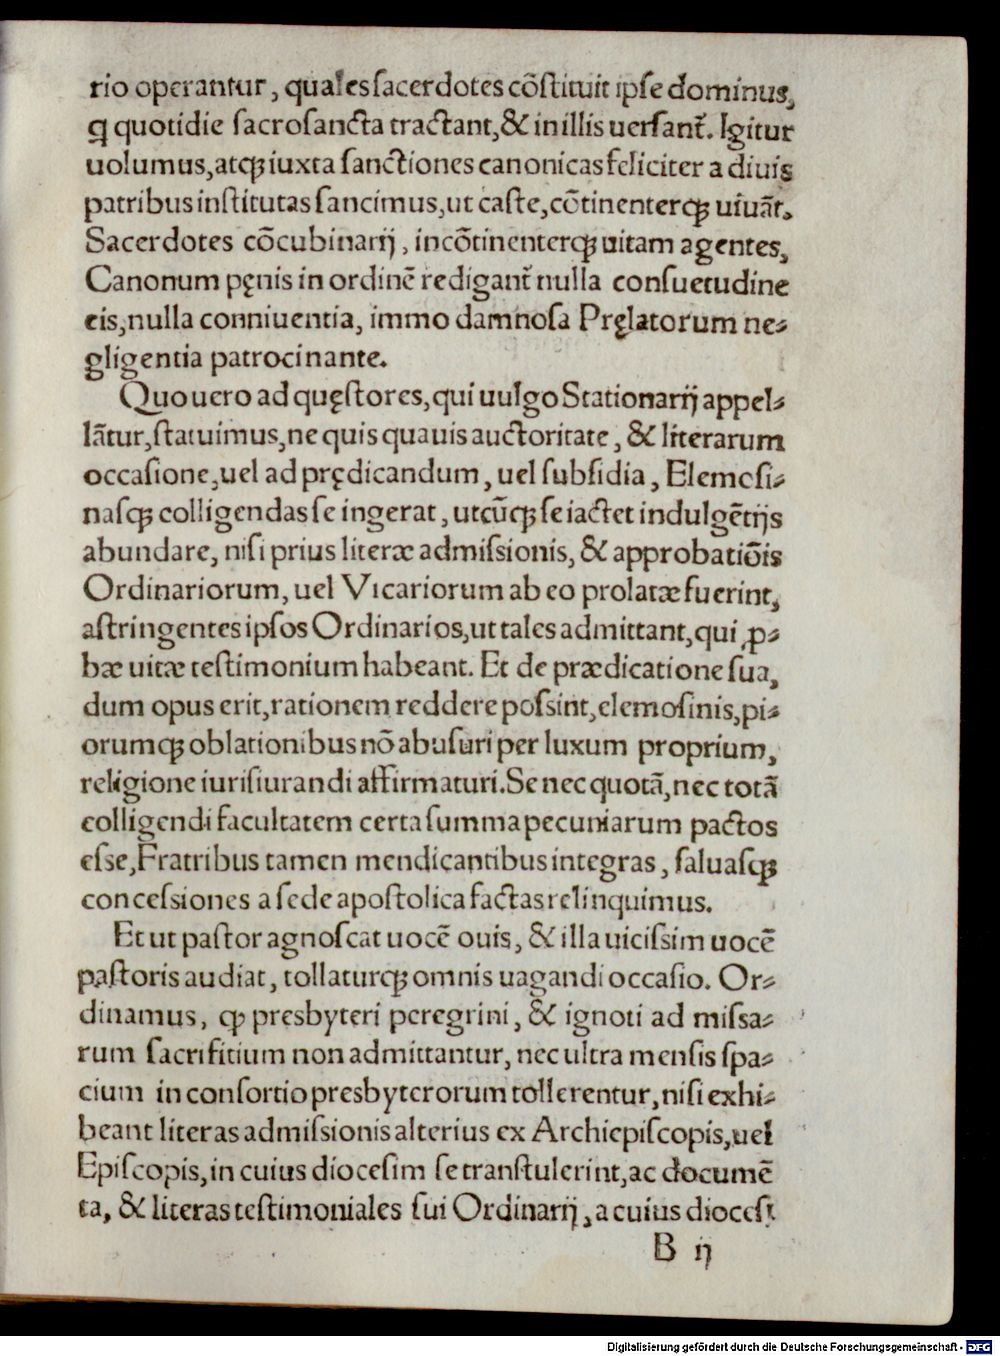 rio operantur, quales ſacerdotes cõſtituit ipſe dominus,
q̃ quotidie ſacroſancta tractant, & in illis uerſant᷑. Igitur
uolumus, atqꝫ iuxta ſanctiones canonicas feliciter a diuis
patribus inſtitutas ſancimus, ut caſte, cõtinenterqꝫ uiuãt.
Sacerdotes cõcubinarij, incõtinenterqꝫ uitam agentes,
Canonum pęnis in ordinẽ redigant᷑ nulla conſuetudine
eis, nulla conniuentia, immo damnoſa Pręlatorum ne⸗
gligentia patrocinante.
Quo uero ad quęſtores, qui uulgo Stationarij appel⸗
lãtur, ſtatuimus, ne quis quauis auctoritate, & literarum
occaſione, uel ad prędicandum, uel ſubſidia, Elemoſi⸗
naſqꝫ colligendas ſe ingerat, utcũqꝫ ſe iactet indulgẽtijs
abundare, niſi prius literæ admiſsionis, & approbatiõis
Ordinariorum, uel Vicariorum ab eo prolatæ fuerint,
aſtringentes ipſos Ordinarios, ut tales admittant, qui ꝓ⸗
bæ uitæ teſtimonium habeant. Et de prædicatione ſua,
dum opus erit, rationem reddere poſsint, elemoſinis, pi⸗
orumqꝫ oblationibus nõ abuſuri per luxum proprium,
religione iuriſiurandi affirmaturi. Se nec quotã, nec totã
colligendi facultatem certa ſumma pecuniarum pactos
eſse, Fratribus tamen mendicantibus integras, ſaluaſqꝫ
conceſsiones a ſede apoſtolica factas relinquimus.
Et ut paſtor agnoſcat uocẽ ouis, & illa uiciſsim uocẽ
paſtoris audiat, tollaturqꝫ omnis uagandi occaſio. Or⸗
dinamus, ꝙ presbyteri peregrini, & ignoti ad miſsa⸗
rum ſacrifitium non admittantur, nec ultra menſis ſpa⸗
cium in conſortio presbyterorum tollerentur, niſi exhi⸗
beant literas admiſsionis alterius ex Archiepiſcopis, uel
Epiſcopis, in cuius dioceſim ſe tranſtulerint, ac documẽ
ta, & literas teſtimoniales ſui Ordinarij, a cuius dioceſi
B ij
Digitalisierung gefördert durch die Deutsche Forschungsgemeinschaft - DFG